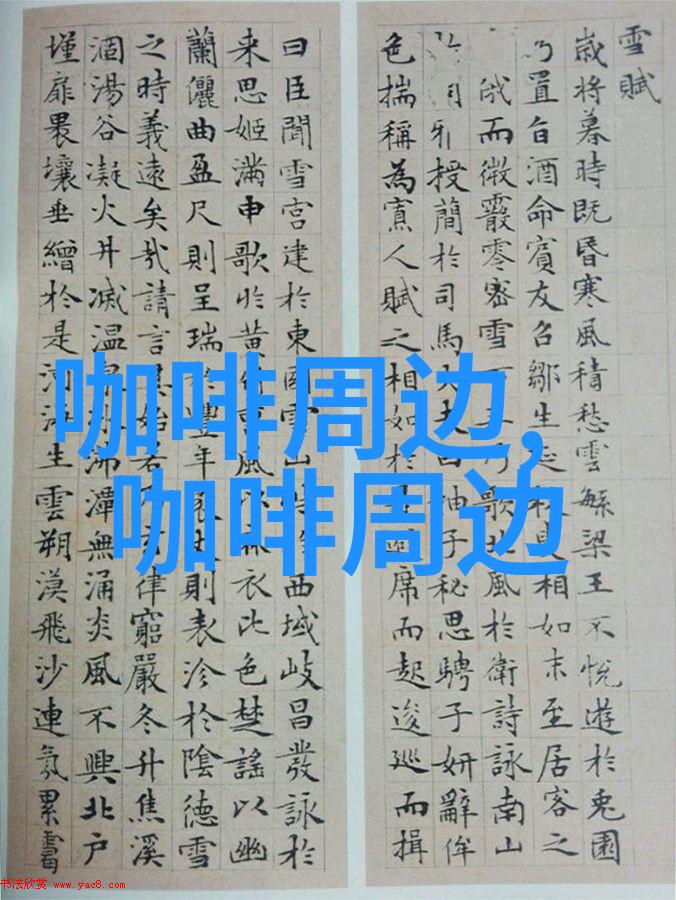 雪賦
歲将暮時既昏寒風積愁雲繁梁王不悅遊於兎園
乃置旨酒命賓友召鄒生延枚叟相如末至居客之
俄而微霰零密雪下王乃歌北風於衛詩詠南山
雅授簡於司馬大夫曰抽子秘思騁子妍辭侔
色揣稱為寡人賦之相如於是避席而起逡巡而揖
曰臣聞雪宮建於東國雪山西域岐昌發詠於
来思姬滿申歌於黄竹曹風以麻衣比色楚謠以幽
蘭儷曲盈尺則呈瑞於豐年袤丈則表沴於陰德雪
之時義遠矣哉請言其始若玄律窮嚴冬升焦溪
涸湯谷凝火井滅温泉冰沸潭無涌炎風不興北户
墐扉裸壤垂繒於是河海生雲朔漠飛沙連氛累靄
咖啡周边,
咖啡周边
书法欣赏 www.yac8.com